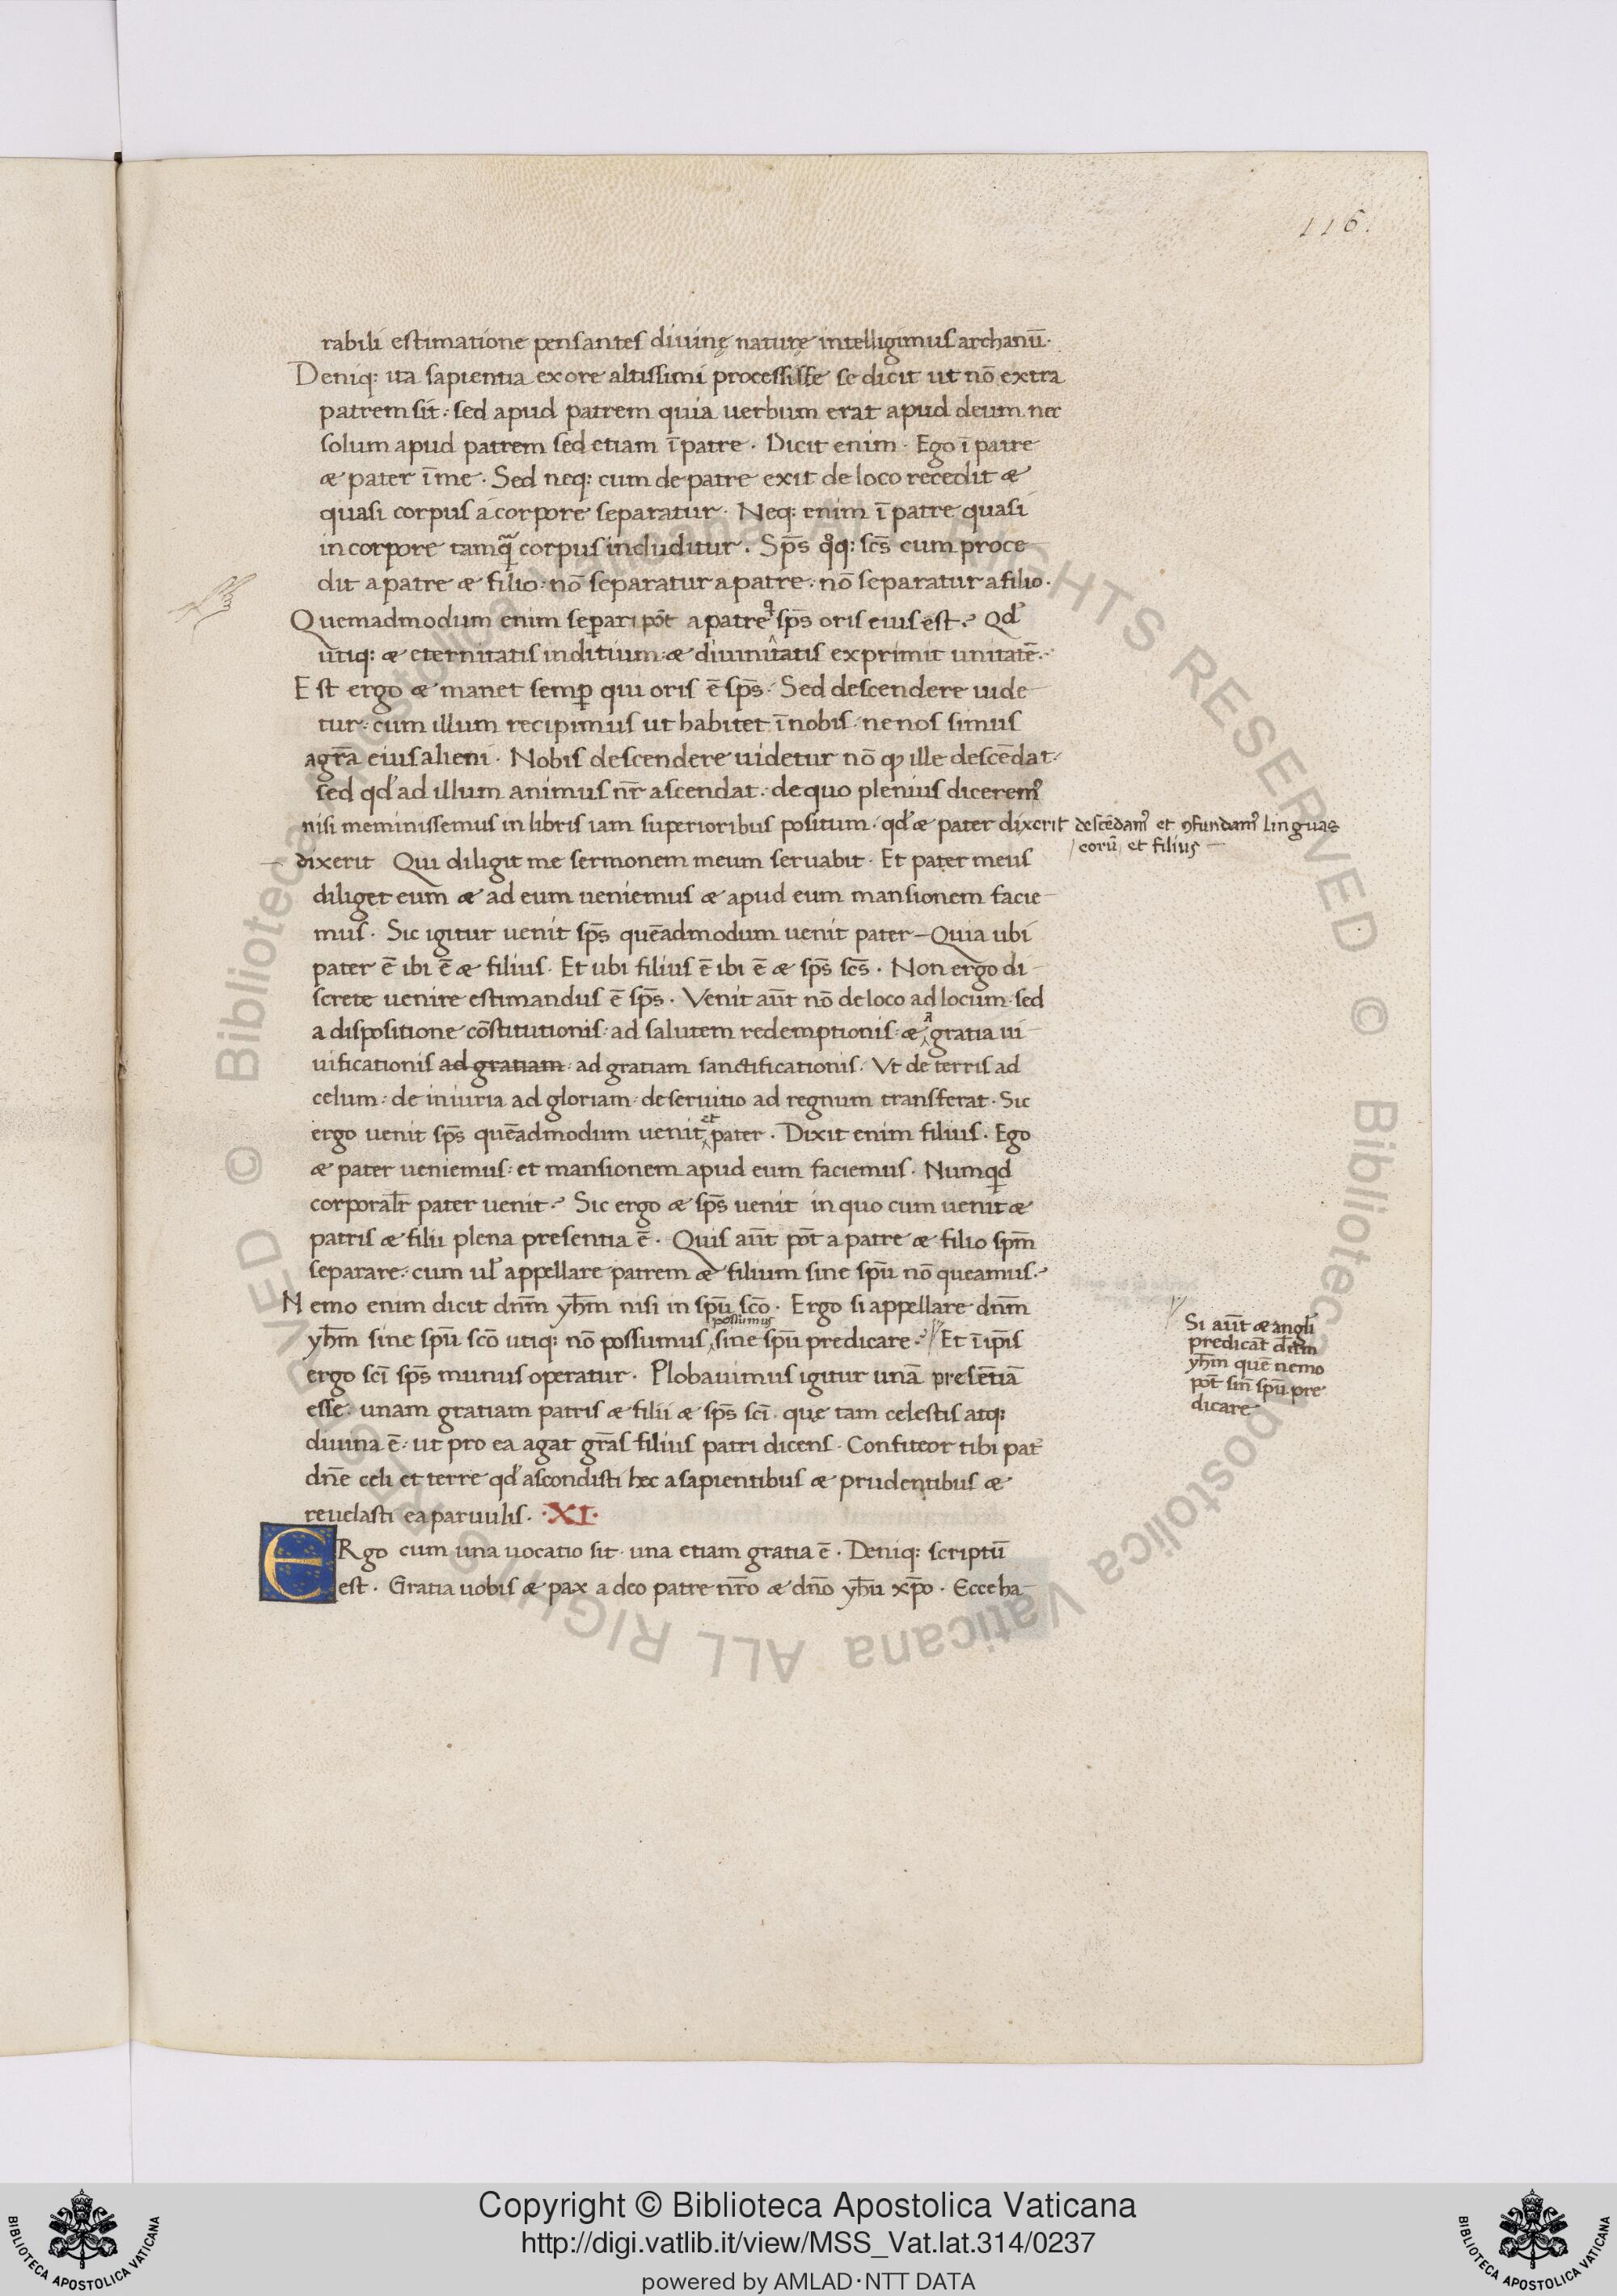 116.
rabili estimatione pensantes diuinę naturę intelligimus archanū·
Deniq: ita sapientia ex ore altissimi processisse se dicit ut nō extra
patrem sit: sed apud patrem quia uerbum erat apud deum nec
solum apud patrem sed etiam ī patre · Dicit enim · Ego ī patre
æ pater ī me · Sed neq: cum de patre exit de loco recedit æ
quasi corpus á corpore separatur · Neq: enim ī patre quasi
in corpore tamq̄ corpus includitur. Sp̄s qͦq: sc̄s cum proce
dit a patre æ filio: nō separatur a patre: nō separatur a filio·
Quemadmodum enim separi pōt a patre q̇ sp̄s oris eius est? Qd̓
utiq: æ eternitatis inditium: æ diuinitatis exprimit unitatē·
Est ergo æ manet semꝑ qui oris ē sp̄s· Sed descendere uide
tur: cum illum recipimus ut habitet ī nobis· ne nos simus
agr̄a eius alieni · Nobis descendere uidetur nō ꝙ ille descēdat·
sed qd̓ ad illum animus nr̄ ascendat: de quo plenius dicerem᾽
nisi meminissemus in libris iam superioribus positum· qd̓ æ pater dixerit descēdam᾽ et ꝯfundam᾽ linguas
eorū et filius
dixerit Qui diligit me sermonem meum seruabit · Et pater meus
diliget eum æ ad eum ueniemus æ apud eum mansionem facie
mus · Sic igitur uenit sp̄s quēadmodum uenit pater – Quia ubi
pater ē ibi ē æ filius· Et ubi filius ē ibi ē æ sp̄s sc̄s · Non ergo di
screte uenire estimandus ē sp̄s · Venit aūt nō de loco ad locum· sed
a dispositione cōstitutionis: ad salutem redemptionis: æ a gratia ui
uificationis ad gratiam· ad gratiam sanctificationis· Vt de terris ad
celum: de iniuria ad gloriam: de seruitio ad regnum transferat · Sic
ergo uenit sp̄s quēadmodum uenit et pater · Dixit enim filius · Ego
æ pater ueniemus: et mansionem apud eum faciemus · Numqd
corporalr̄ pater uenit? Sic ergo æ sp̄s uenit in quo cum uenit æ
patris æ filii plena presentia ē · Quis aūt pōt a patre æ filio sp̄m
separare: cum ul̓ appellare patrem æ filium sine sp̄u nō queamus?
Nemo enim dicit dn̄m yh̄m nisi in sp̄u sc̄o · Ergo si appellare dn̄m
yh̄m sine sp̄u sc̄o utiq: nō possumus possumus sine sp̄u predicare? Et ī ip̄is
Si aūt æ angl̓i
predicāt dn̄m
yh̄m quē nemo
pōt sin̄ sp̄u pre
dicare
ergo sc̄i sp̄s munus operatur · Plobauimus igitur unā presētiā
esse· unam gratiam patris æ filii æ sp̄s sc̄i· quę tam celestis atq:
diuina ē: ut pro ea agat gr̄as filius patri dicens · Confiteor tibi pat̓
dn̄e celi et terre qd̓ ascondisti hęc a sapientibus æ prudentibus æ
reuelasti ea paruulis· ·XI·
ERgo cum una uocatio sit· una etiam gratia ē · Deniq: scriptū
est · Gratia uobis æ pax a deo patre nr̄o æ dn̄o yh̄u xp̄o · Ecce ha
© Biblioteca Apostolica Vaticana ALL RIGHTS RESERVED © Biblioteca Apostolica Vaticana ALL RIGHTS RESERVED
Copyright © Biblioteca Apostolica Vaticana
http://digi.vatlib.it/view/MSS_Vat.lat.314/0237
powered by AMLAD·NTT DATA
BIBLIOTECA APOSTOLICA VATICANA
BIBLIOTECA APOSTOLICA VATICANA